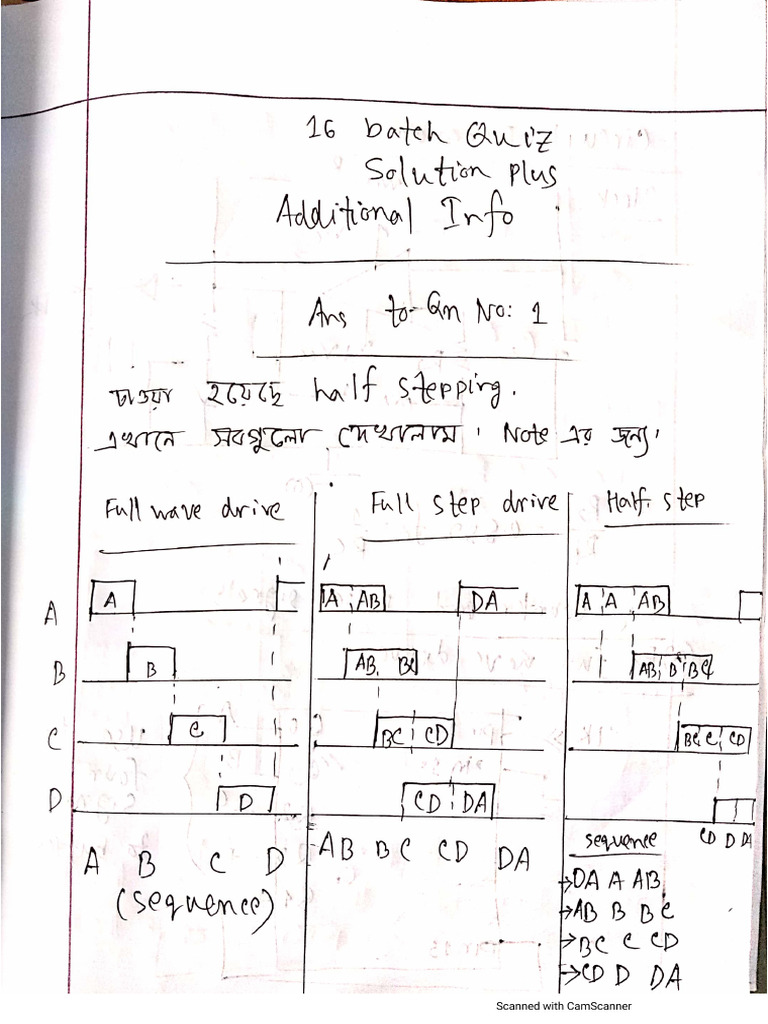 16 batch Quiz
Solution plus
Additional Info
Ans to Qn No: 1
চাওয়া হয়েছে half stepping.
এখানে সবগুলো দেখালাম। Note এর জন্য।
Full wave drive
Full step drive
Half step
A
A
A AB
DA
A A AB
B
B
AB BC
AB B BC
C
C
BC CD
BC C CD
D
D
CD DA
CD D DA
A B C D
(sequence)
AB BC CD DA
sequence
→DA A AB
→AB B BC
→BC C CD
→CD D DA
Scanned with CamScanner